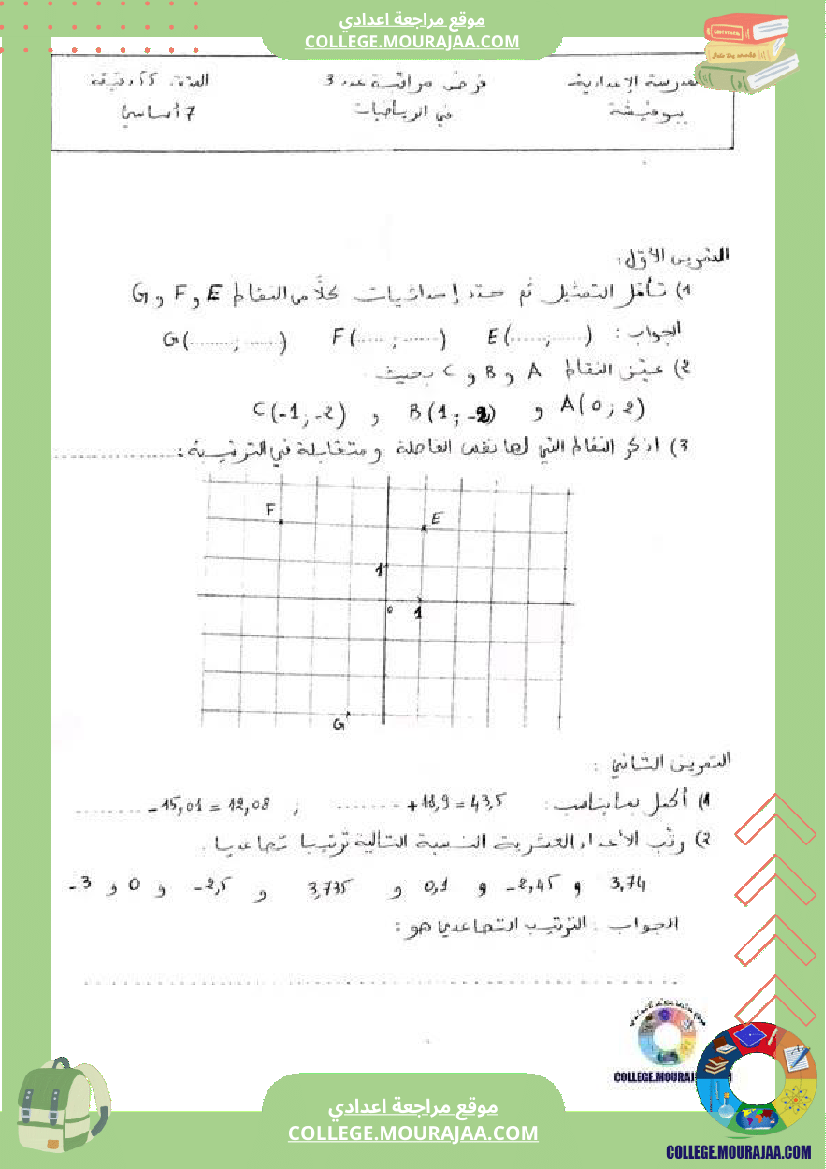 موقع مراجعة اعدادي
COLLEGE.MOURAJAA.COM
المدرسة الإعدادية
فرض مراقبة عدد 3
المدة:
في الرياضيات
7 أساسي
التمرين الأول:
1) تأمل التمثيل ثم حدد إحداثيات كلا من النقاط E و F و G
الجواب : E (......;......) F (......;......) G (......;......)
2) عيّن النقاط A و B و C بحيث
A(0;2) و B(1;-2) و C(-1;-2)
3) اذكر النقاط التي لها نفس الفاصلة ومتقابلة في الترتيبة:..................
F
E
1
0
1
G
التمرين الثاني :
1) أكمل بما يناسب: ........ + 18,9 = 43,5 ; ........ - 15,01 = 12,08
2) رتّب الأعداد العشرية النسبية التالية ترتيبا تصاعديا .
3,74 و -2,45 و 0,1 و 3,735 و -2,5 و 0 و -3
الجواب : الترتيب التصاعدي هو:
................................................
COLLEGE.MOURAJ
موقع مراجعة اعدادي
COLLEGE.MOURAJAA.COM
COLLEGE.MOURAJAA.COM